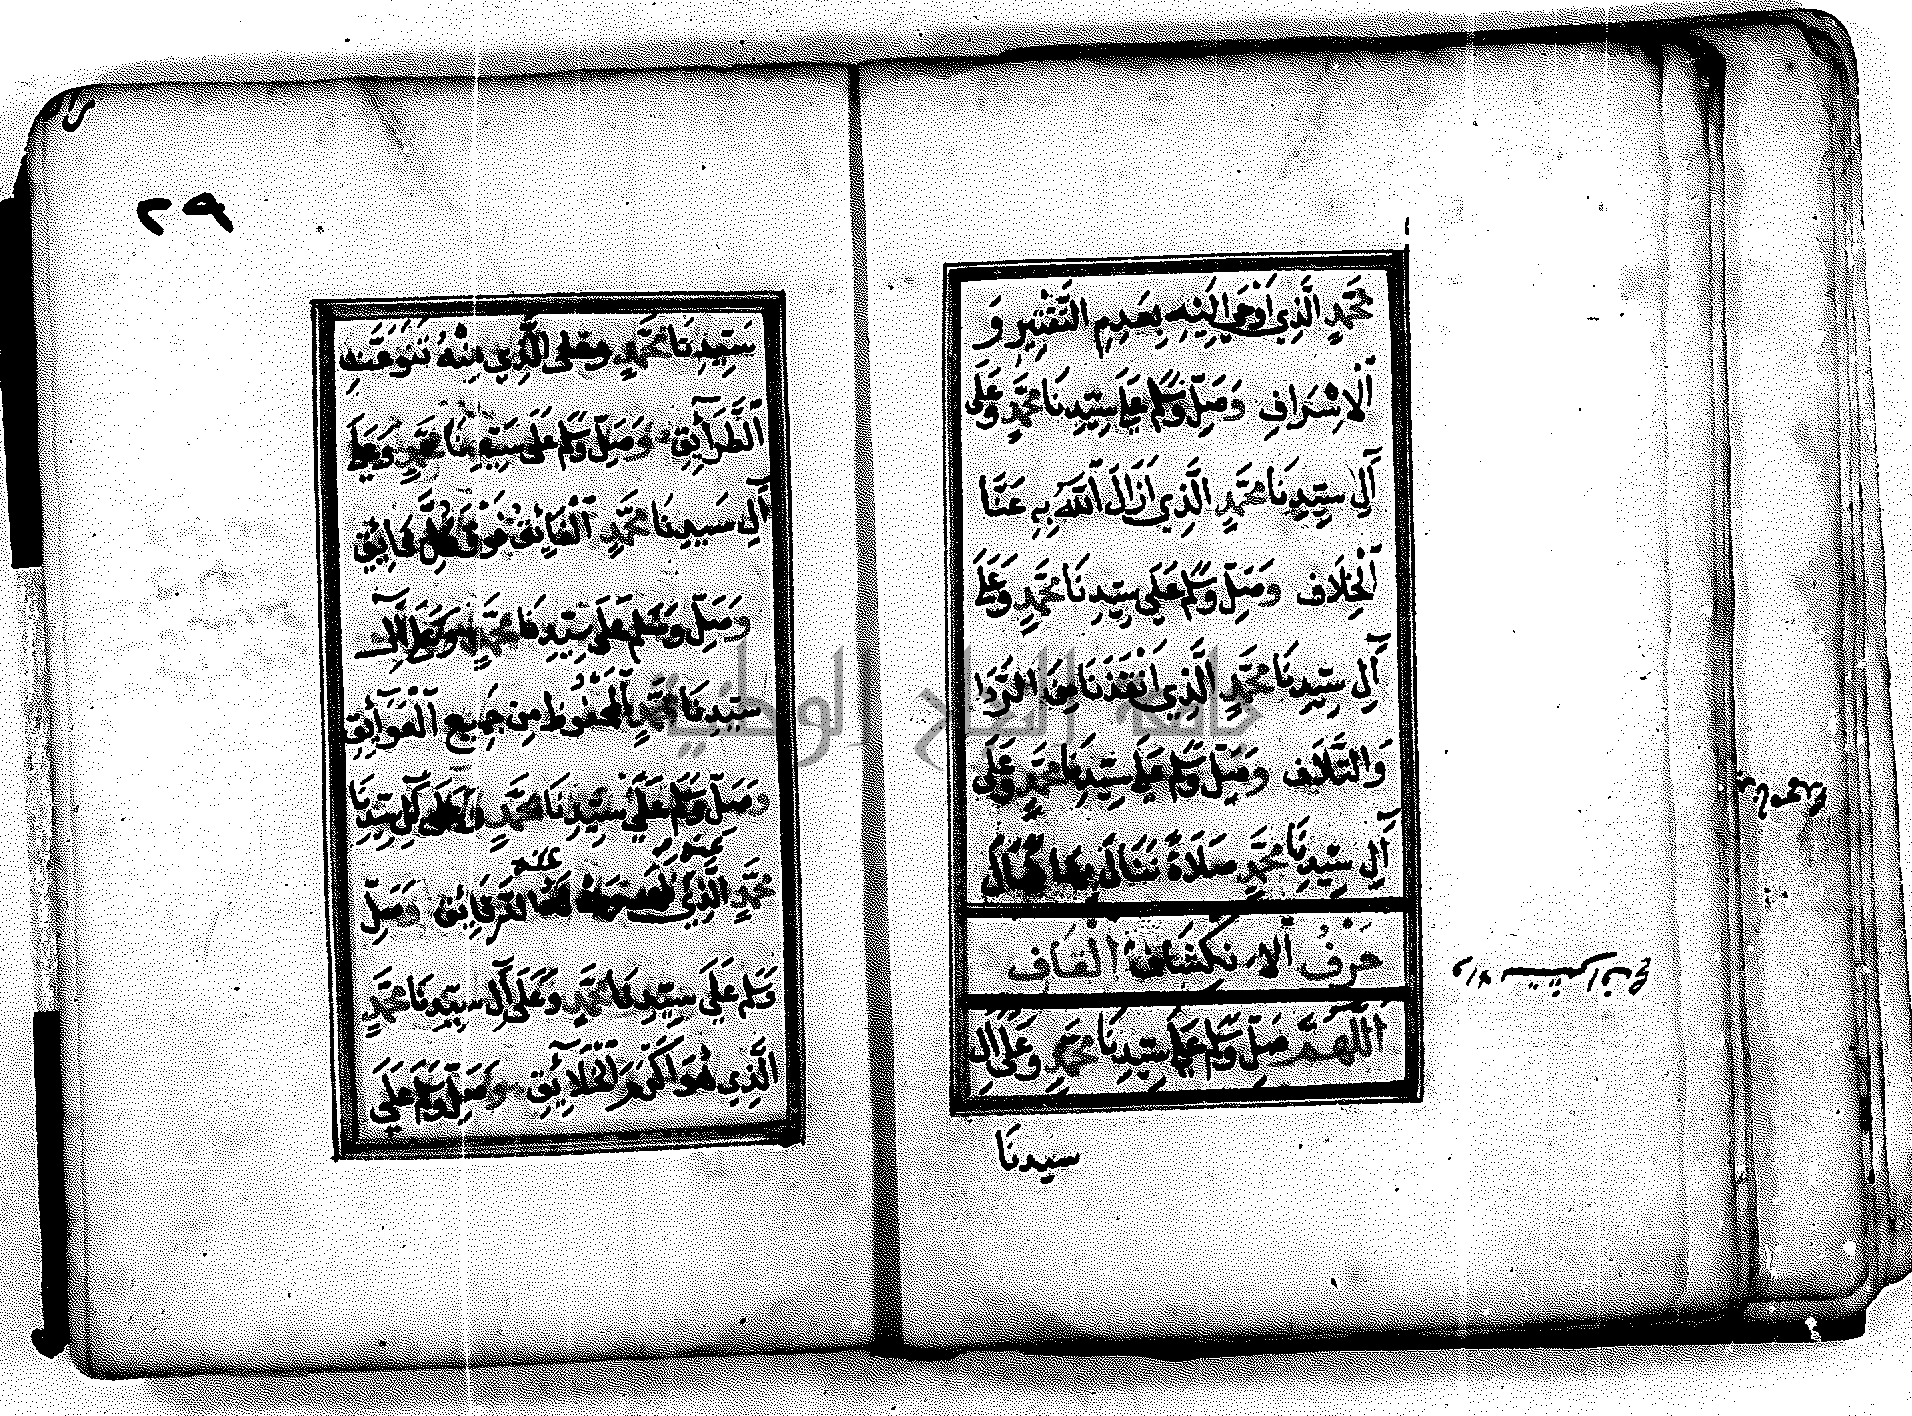 مُحَمَّدٍ الَّذِي اَوْحَى اِلَيْهِ بِعَدِمِ التَّقْتِيرِ وَ
اَلْاِسْرَافِ وَصَلِّ وَسَلِّمْ عَلَى سَيِّدِنَا مُحَمَّدٍ وَعَلَى
آلِ سَيِّدِنَا مُحَمَّدٍ الَّذِي اَزَالَ اللهُ بِهِ عَنَّا
اَلْخِلَافَ وَصَلِّ وَسَلِّمْ عَلَى سَيِّدِنَا مُحَمَّدٍ وَعَلَى
آلِ سَيِّدِنَا مُحَمَّدٍ الَّذِي اَنْقَذَنَا مِنَ الرَّدَا
وَالتَّلَافِ وَصَلِّ وَسَلِّمْ عَلَى سَيِّدِنَا مُحَمَّدٍ وَعَلَى
آلِ سَيِّدِنَا مُحَمَّدٍ صَلَاةً نَنَالُ بِهَا
حَرْفُ الْقَافِ
اَللّٰهُمَّ صَلِّ وَسَلِّمْ عَلَى سَيِّدِنَا مُحَمَّدٍ وَعَلَى آلِ
سيدنَا
٢٩
سَيِّدِنَا مُحَمَّدٍ الَّذِي مِنْهُ
اَلطَّرَآئِقُ وَصَلِّ وَسَلِّمْ عَلَى سَيِّدِنَا مُحَمَّدٍ وَعَلَى
آلِ سَيِّدِنَا مُحَمَّدٍ اَلْفَائِقِ فَوْقَ كُلِّ فَائِقٍ
وَصَلِّ وَسَلِّمْ عَلَى سَيِّدِنَا مُحَمَّدٍ وَعَلَى آلِ
سَيِّدِنَا مُحَمَّدٍ اَلْمَحْفُوظِ مِن جَمِيعِ اَلْعَوَآئِقِ
وَصَلِّ وَسَلِّمْ عَلَى سَيِّدِنَا مُحَمَّدٍ وَعَلَى آلِ سَيِّدِنَا
مُحَمَّدٍ الَّذِي وَصَلِّ
وَسَلِّمْ عَلَى سَيِّدِنَا مُحَمَّدٍ وَعَلَى آلِ سَيِّدِنَا مُحَمَّدٍ
الَّذِي هُوَ اَكْرَمُ الْخَلَائِقِ وَصَلِّ وَسَلِّمْ عَلَى
جامعة النجاح الوطنية